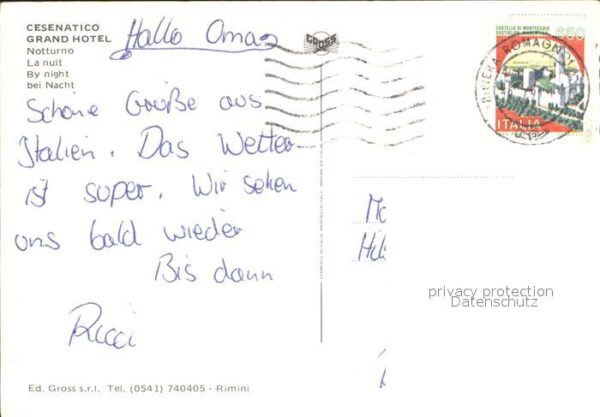 CESENATICO
GRAND HOTEL
Notturno
La nuit
By night
bei Nacht
Hallo Omas
Schöne Grüße aus
Italien. Das Wetter
ist super. Wir sehen
uns bald wieder
Bis dann
Ricci
Ed. Gross s.r.l. Tel. (0541) 740405 - Rimini
GROSS
CASTELLO DI MONTECCHIO
850
ITALIA
RIVIERA ROMAGNOLA
privacy protection
Datenschutz